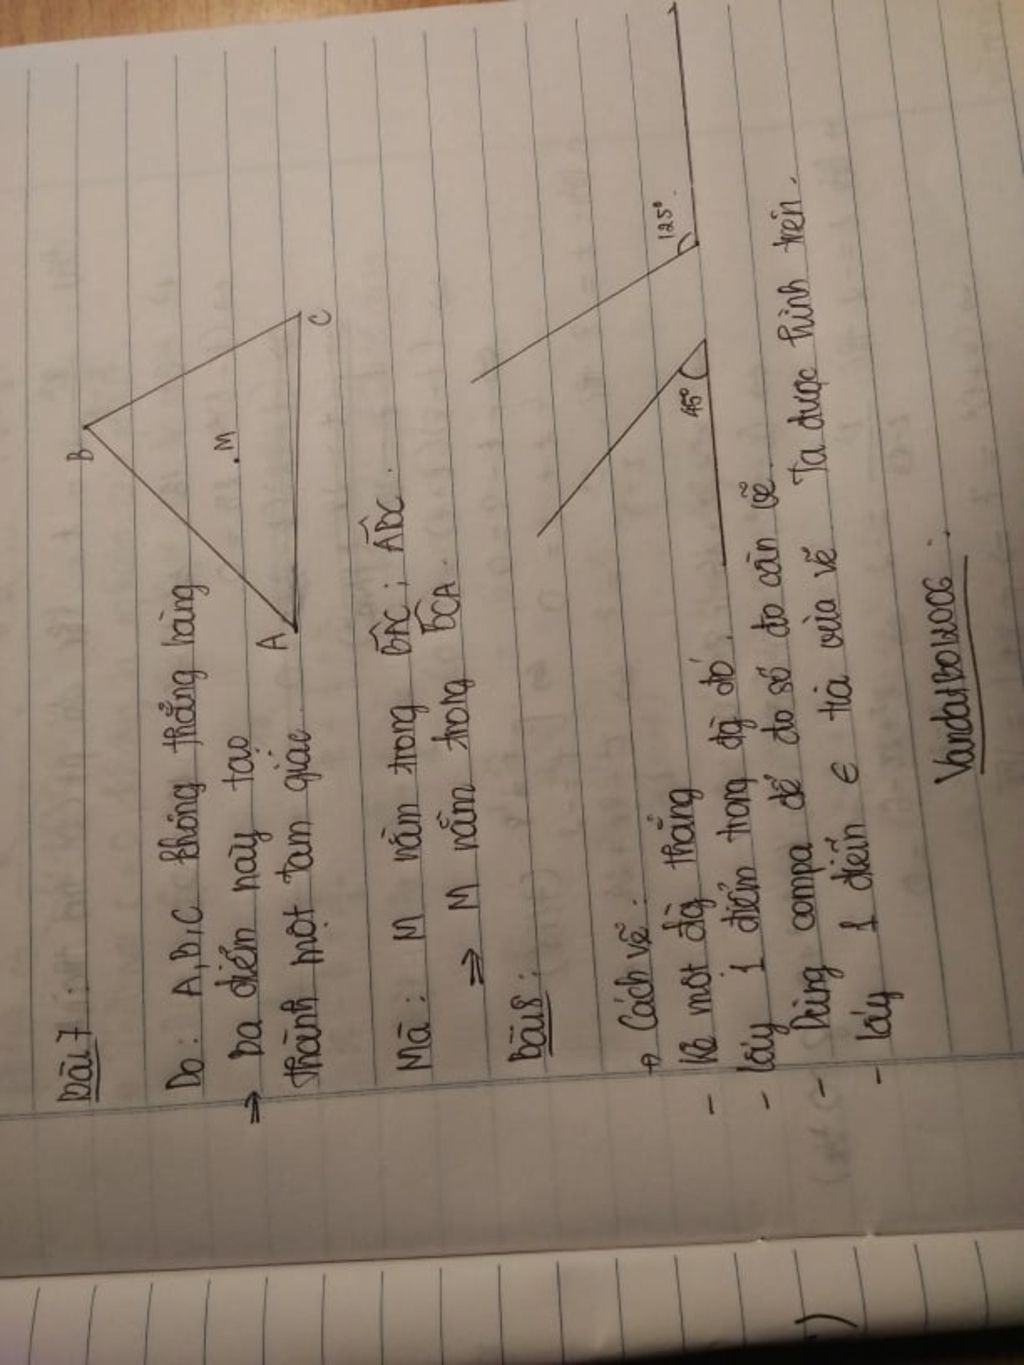 Bài 7:
B
Do: A, B, C không thẳng hàng
⇒ ba điểm này tạo
thành một tam giác.
A
M
C
Mà: M nằm trong BAC; ABC.
⇒ M nằm trong BCA.
Bài 8:
45°
125°
Cách vẽ:
- Kẻ một đg thẳng
- lấy 1 điểm trong đg đó.
- Dùng compa để đo số đo cần vẽ.
- lấy 1 điểm ∈ tia vừa vẽ Ta được hình trên.